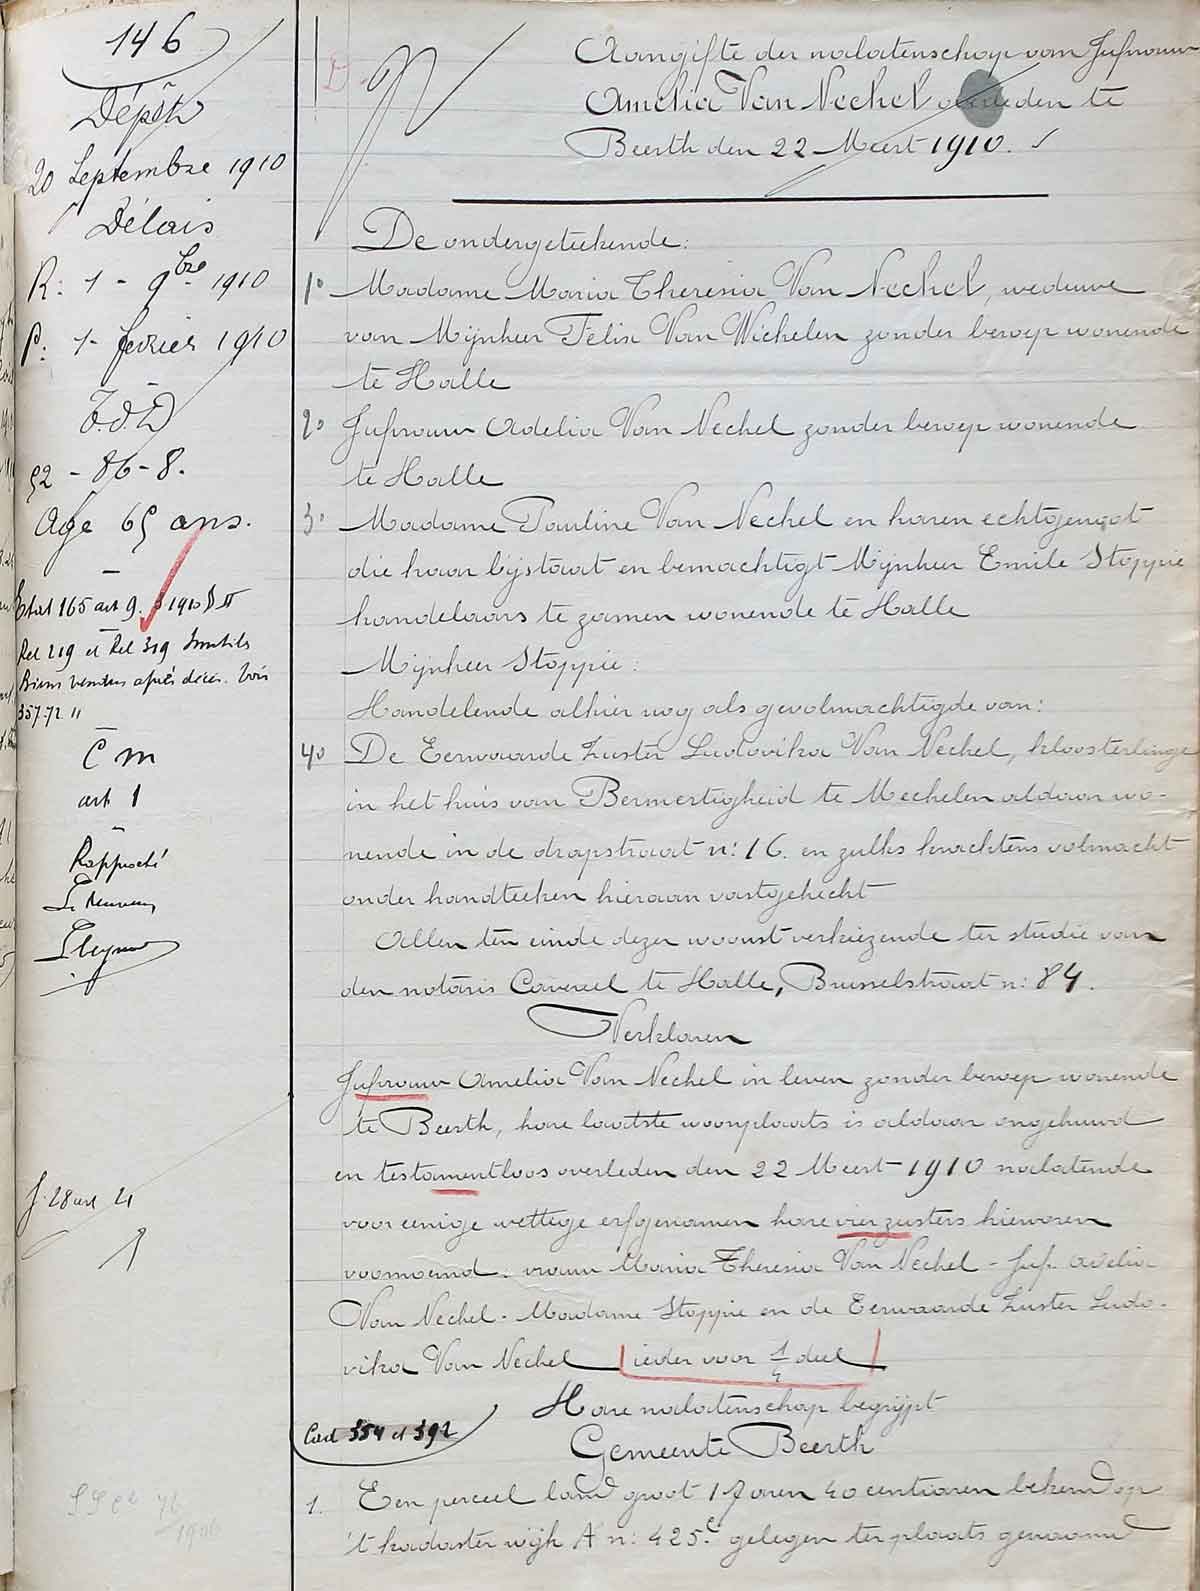 146
Dépôt
20 Septembre 1910
Délais
R: 1 - 9bre 1910
P: 1 - février 1910
T.d.D
52 - 86 - 8.
Age 65 ans.
Etat 165 art 9. 1910
Rel 219 et Rel 319 Inutiles
Biens vendus après décès. Voir
357.72 "
C m
art 1
Rapproché
Le Receveur
f. 28 art 21
Card 354 et 392
Aangifte der nalatenschap van Jufvrouw
Amelia Van Nechel overleden te
Beerth den 22 Meert 1910.
De ondergeteekende:
1° Madame Maria Theresia Van Nechel, weduwe
van Mijnheer Felix Van Wichelen zonder beroep wonende
te Halle
2° Jufvrouw Adelia Van Nechel zonder beroep wonende
te Halle
3° Madame Pauline Van Nechel en haren echtgenoot
die haar bijstaat en bemachtigt Mijnheer Emile Stoppie
handelaars te zamen wonende te Halle
Mijnheer Stoppie:
Handelende alhier nog als gevolmachtigde van:
4° De Eerwaarde Zuster Ludovika Van Nechel, kloosterlinge
in het huis van Bermertigheid te Mechelen aldaar wo-
nende in de drapstraat n: 16. en zulks krachtens volmacht
onder handteeken hieraan vastgehecht
Allen ten einde dezer woonst verkiezende ter studie van
den notaris Coveval te Halle, Brusselstraat n: 84.
Verklaren
Jufvrouw Amelia Van Nechel in leven zonder beroep wonende
te Beerth, hare laatste woonplaats is aldaar ongehuwd
en testamentloos overleden den 22 Meert 1910 nalatende
voor eenige wettege erfgenamen hare vier zusters hiervoren
voornoemd. vrouw Maria Theresia Van Nechel - Juf. Adelia
Van Nechel - Madame Stoppie en de Eerwaarde Zuster Ludo-
vika Van Nechel ieder voor 1/4 deel
Hare nalatenschap begrijpt
Gemeente Beerth
1. Een perceel land groot 17 aren 40 centiaren bekend op
't kadaster wijk A n: 425c gelegen ter plaats genaamd